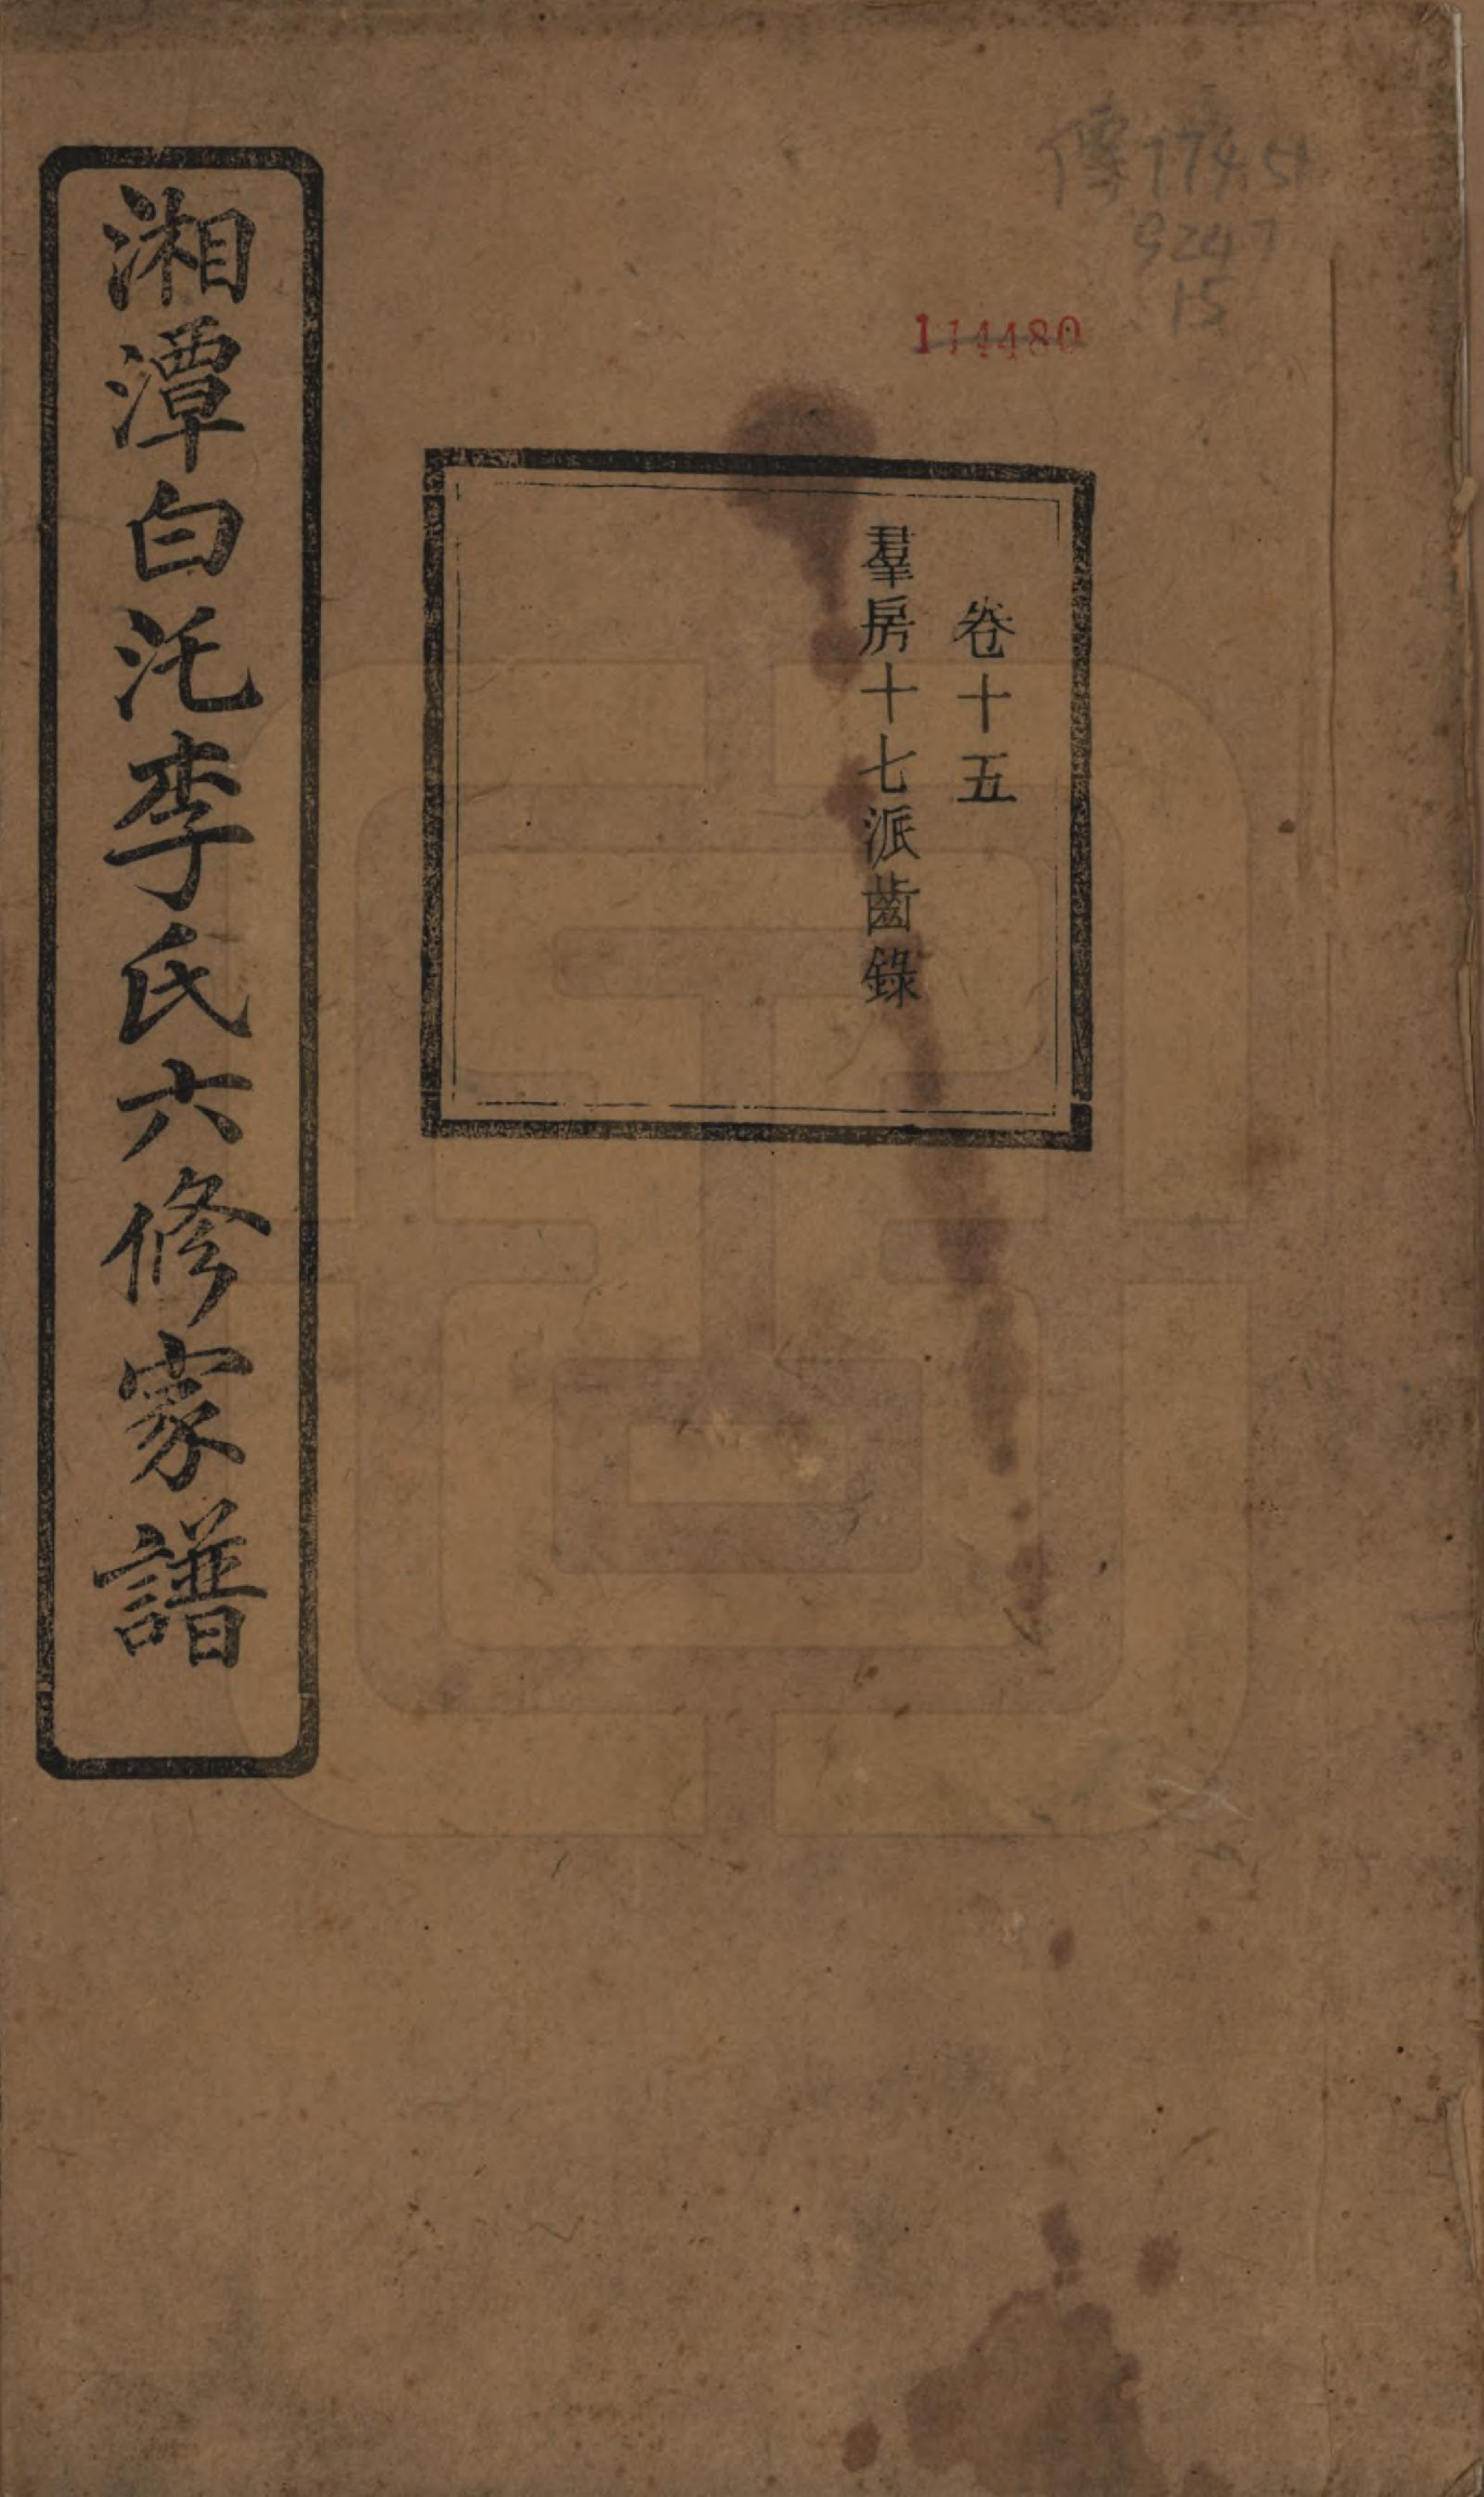 傳 174.51
9247
15
114480
卷十五
羣房十七派齒錄
湘潭白沱李氏六修家譜